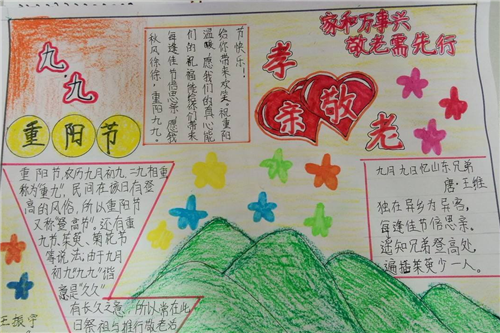 九.九
重阳节
秋风徐徐,重阳九九。
每逢佳节倍思亲,愿我
们的祝福能给你们带来
温暖,愿我们的真心能
给你带来欢笑,祝重阳
节快乐!
家和万事兴
敬老需先行
孝亲敬老
重阳节,农历九月初九,二九相重
称为"重九"。民间在该日有登
高的风俗,所以重阳节
又称"登高节"。还有重
九节、茱萸、菊花节
等说法。由于九月
初九"九九"谐
意是"久久"
有长久之意,所以常在此
日祭祖与推行敬老活
九月九日忆山东兄弟
唐·王维
独在异乡为异客,
每逢佳节倍思亲。
遥知兄弟登高处,
遍插茱萸少一人。